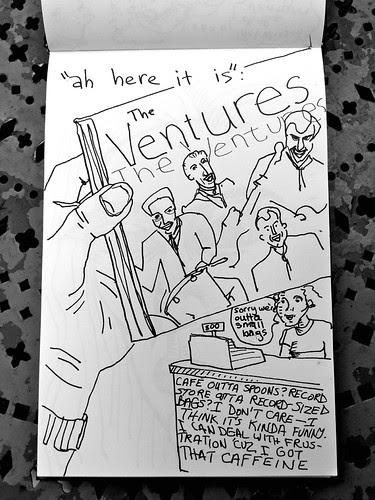 "ah here it is":
The
Ventures
The Ventures
sorry we're
outta
small
bags
800
CAFE OUTTA SPOONS? RECORD
STORE OUTTA RECORD-SIZED
BAGS? I DON'T CARE—I
THINK IT'S KINDA FUNNY.
I CAN DEAL WITH FRUS-
TRATION 'CUZ I GOT
THAT CAFFEINE